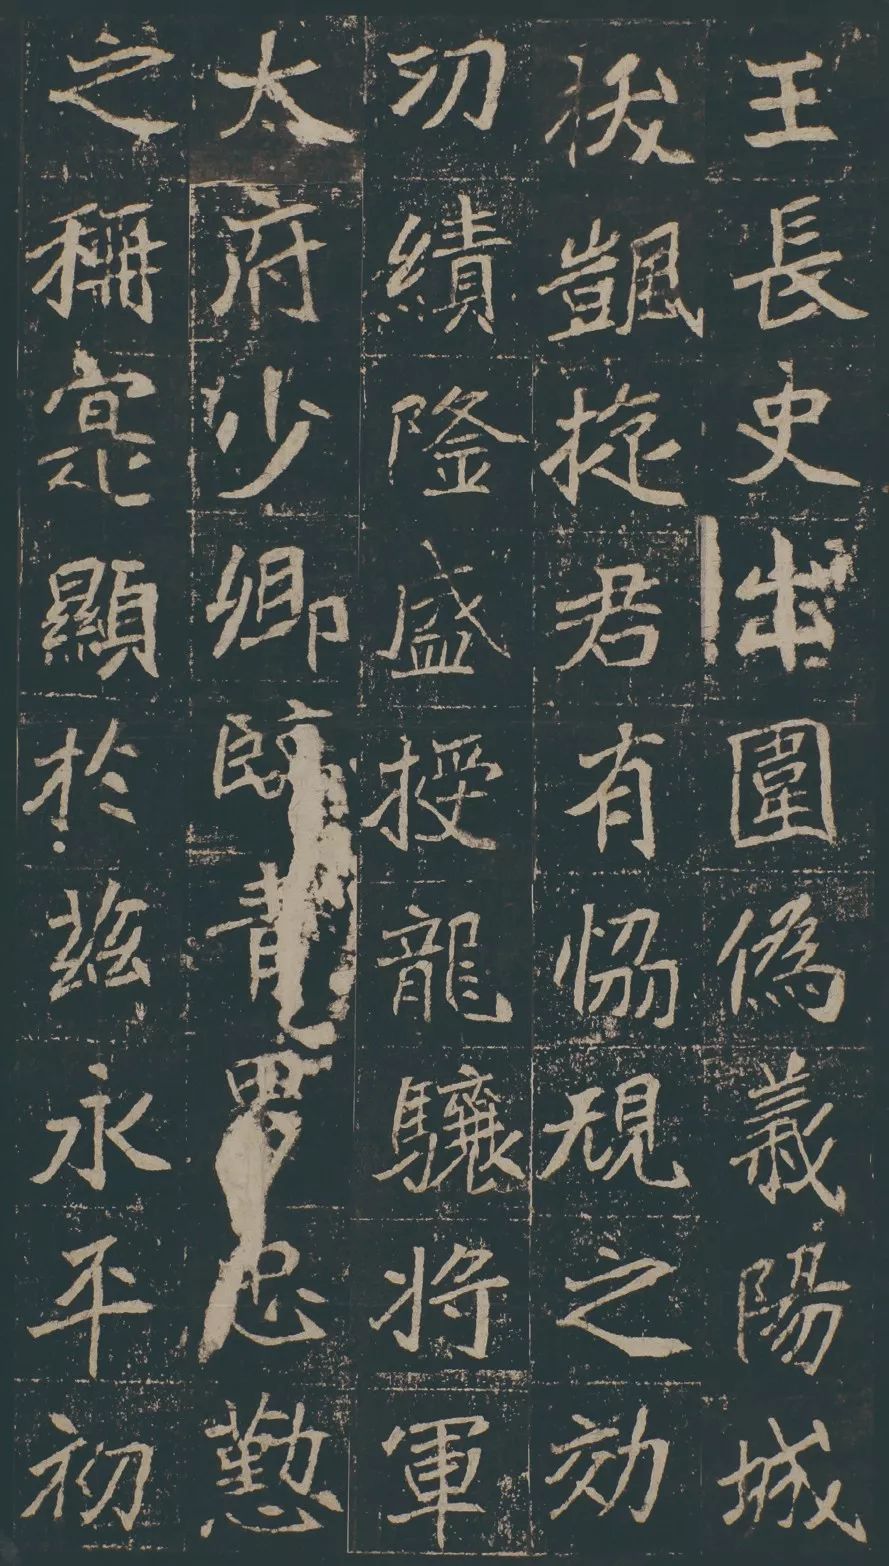 王長史出圍偽義陽城
拔颽旋君有恊規之効
功績隆盛授龍驤将軍
太府少卿臨青男忠懃
之稱寔顯於茲永平初